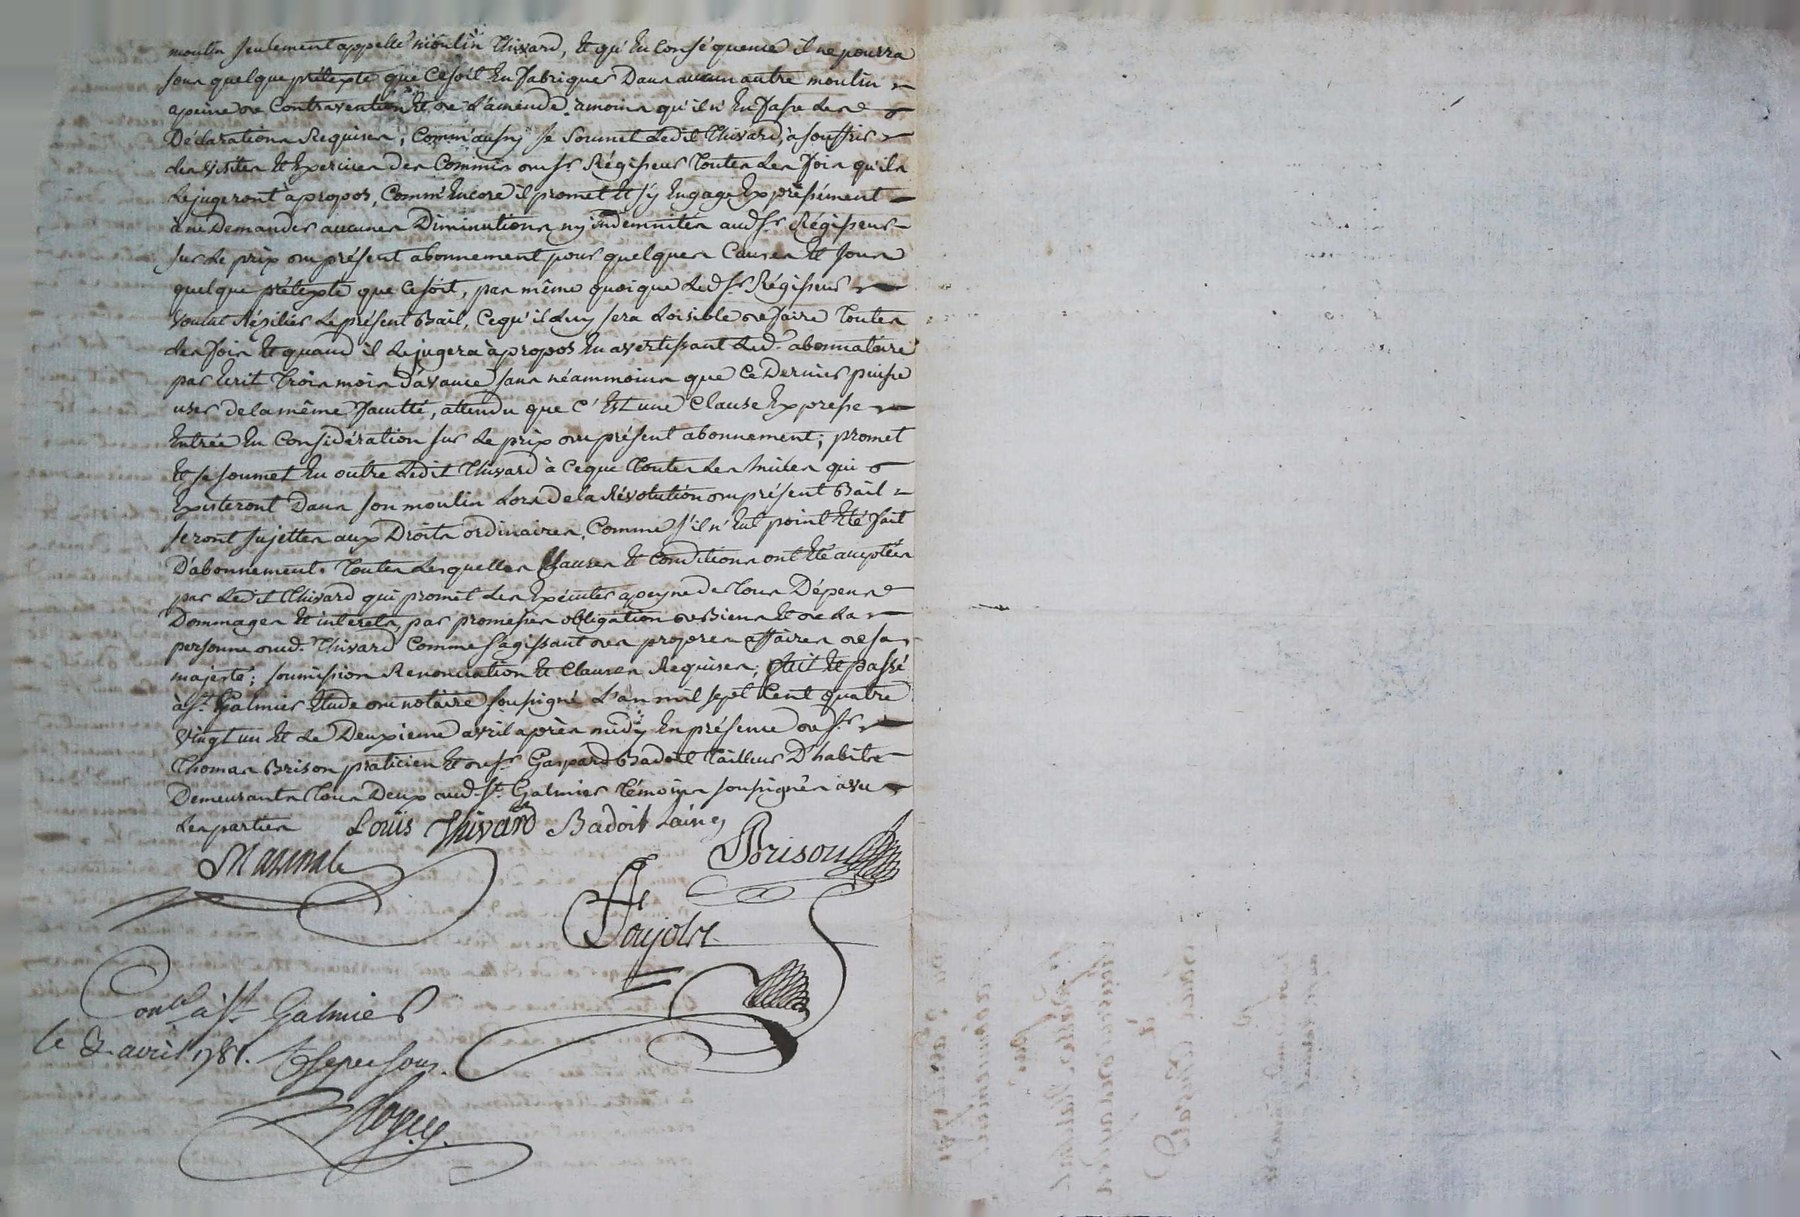 moulin seulement appellé moulin Thivard, et qu'en conséquence il ne pourra
sous quelque prétexte que ce soit en fabriquer dans aucun autre moulin
a peine de contravention et de l'amende, a moins qu'il n'en fasse les
Déclarations Requises; comm'aussy se soumet ledit Thivard, à souffrir
les visites et exercices des commis du sr. Régisseur toutes les fois qu'ils
le jugeront à propos, comm'encore il promet et s'y engage expressément
à ne demander aucunes Diminutions ny indemnités aud. sr Régisseur
sur le prix du présent abonnement pour quelques causes et sous
quelque prétexte que ce soit, pas même quoique led. sr Régisseur
voulut Résilier le présent Bail, ce qu'il luy sera loisible de faire toutes
les fois et quand il le jugera à propos en avertissant led. abonnataire
par écrit trois mois d'avance sans néammoins que ce dernier puisse
user de la même faculté, attendu que c'est une clause expresse
entrée en considération sur le prix du présent abonnement; promet
et se soumet en outre ledit Thivard à ce que toutes les huiles qui
existeront dans son moulin lors de la Révolution du présent Bail
seront sujettes aux Droits ordinaires, comme s'il n'eut point été fait
D'abonnement. toutes lesquelles clauses et conditions ont été acceptées
par ledit Thivard qui promet les exécuter a peyne de tous Dépens
Dommages et interets, par promesses obligation de Biens et de la
personne dud. Thivard comme s'agissant des propres affaires de sa
majesté; soumission Renonciation et clauses Requises; fait et passé
à st. Galmier étude du notaire soussigné l'an mil sept cent quatre
vingt un et le Deuxieme avril après midy en présence de sr
Thomas Brison praticien et de sr. Gaspard Badoit tailleur D'habits
Demeurants tous Deux aud. st. Galmier témoins soussignés avec
les parties Louïs Thivard Badoit lainé
Brison
Ponjolet
Con.lé à st. Galmier
le 2 avril 1781.